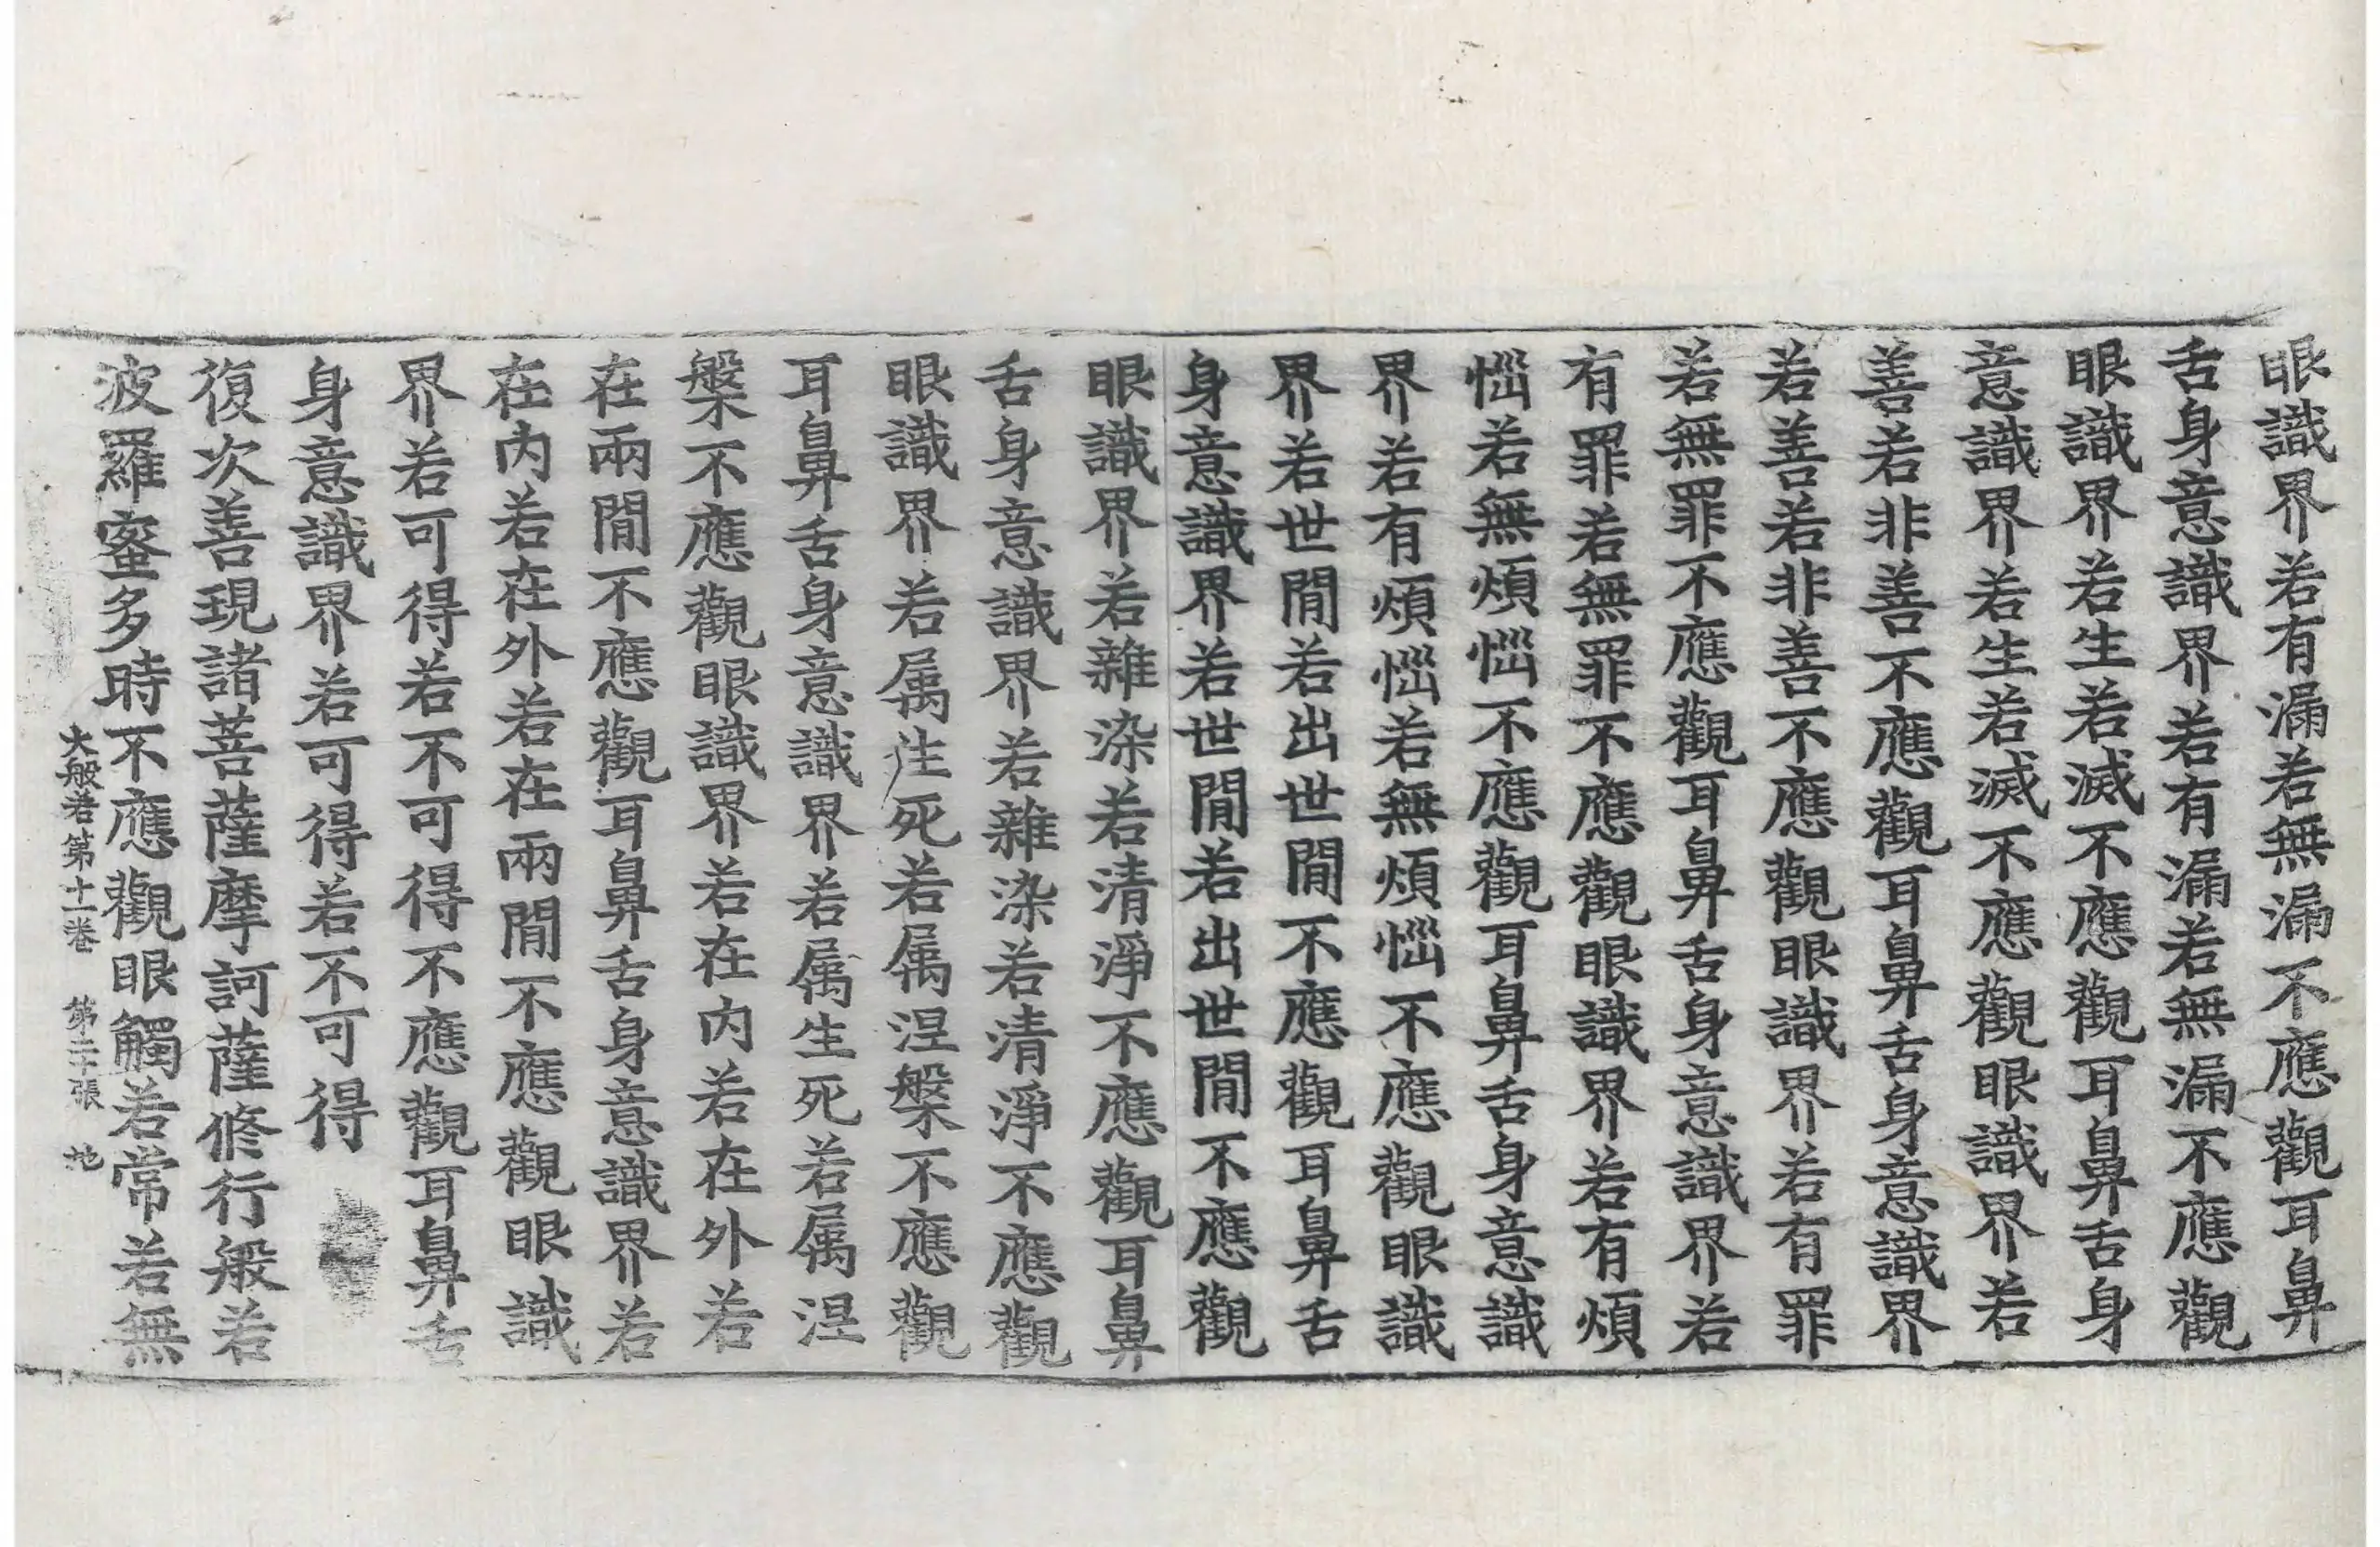 眼識界若有漏若無漏不應觀耳鼻
舌身意識界若有漏若無漏不應觀
眼識界若生若滅不應觀耳鼻舌身
意識界若生若滅不應觀眼識界若
善若非善不應觀耳鼻舌身意識界
若善若非善不應觀眼識界若有罪
若無罪不應觀耳鼻舌身意識界若
有罪若無罪不應觀眼識界若有煩
惱若無煩惱不應觀耳鼻舌身意識
界若有煩惱若無煩惱不應觀眼識
界若世間若出世間不應觀耳鼻舌
身意識界若世間若出世間不應觀
眼識界若雜染若清淨不應觀耳鼻
舌身意識界若雜染若清淨不應觀
眼識界若属生死若属涅槃不應觀
耳鼻舌身意識界若属生死若属涅
槃不應觀眼識界若在内若在外若
在兩間不應觀耳鼻舌身意識界若
在内若在外若在兩間不應觀眼識
界若可得若不可得不應觀耳鼻舌
身意識界若可得若不可得
復次善現諸菩薩摩訶薩修行般若
波羅蜜多時不應觀眼觸若常若無
大般若第十一卷 第二十張 地